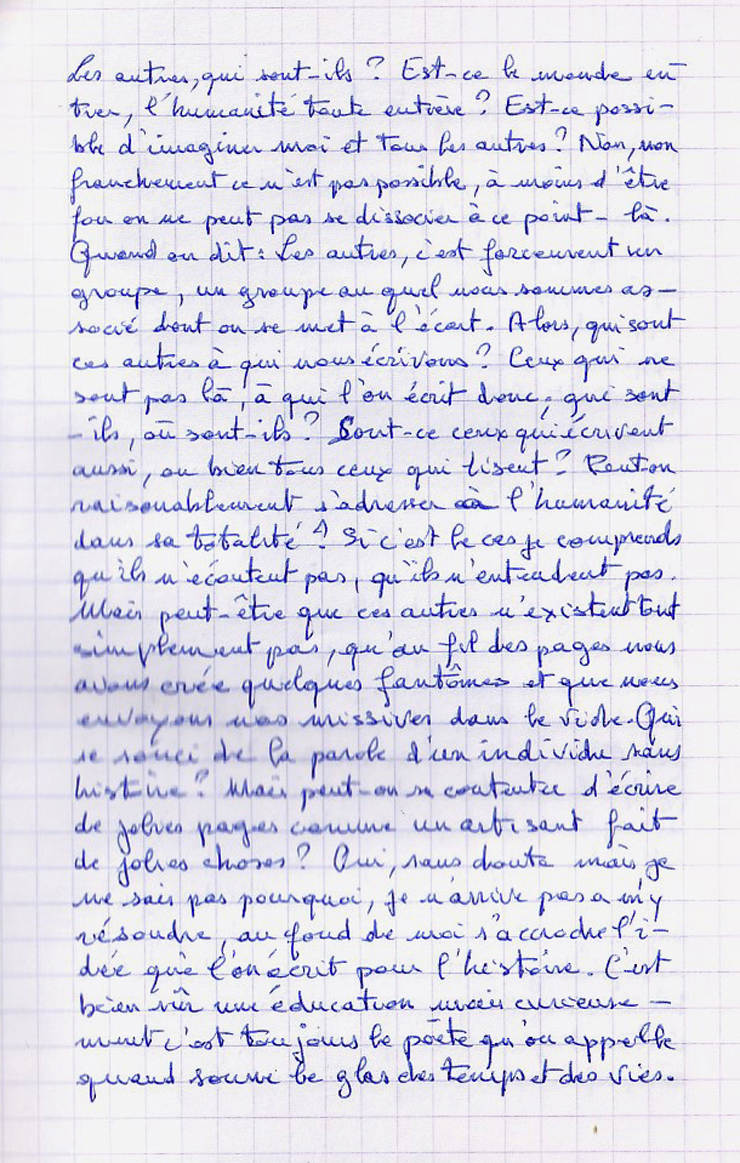 Les autres, qui sont-ils ? Est-ce le monde en
tier, l'humanité toute entière ? Est-ce possi-
ble d'imaginer moi et tous les autres ? Non, non
franchement ce n'est pas possible, à moins d'être
fou on ne peut pas se dissocier à ce point-là.
Quand on dit : Les autres, c'est forcement un
groupe, un groupe au quel nous sommes as-
socié dont on se met à l'écart. Alors, qui sont
ces autres à qui nous écrivons ? Ceux qui ne
sont pas là, à qui l'on écrit donc, qui sont
-ils, où sont-ils ? Sont-ce ceux qui écrivent
aussi, ou bien tous ceux qui lisent ? Peut on
raisonablement s'adresser à l'humanité
dans sa totalité ? Si c'est le cas je comprends
qu'ils n'écoutent pas, qu'ils n'entendent pas.
Mais peut-être que ces autres n'existent tout
simplement pas, qu'au fil des pages nous
avons crée quelques fantômes et que nous
envoyons nos missives dans le vide. Qui
se souci de la parole d'un individu sans
histoire ? Mais peut-on se contenter d'écrire
de jolies pages comme un artisant fait
de jolies choses ? Oui, sans doute mais je
ne sais pas pourquoi, je n'arrive pas a m'y
résoudre, au fond de moi s'accroche l'i-
dée que l'on écrit pour l'histoire. C'est
bien sûr une éducation mais curieuse-
ment c'est toujours le poète qu'on appelle
quand sonne le glas des temps et des vies.